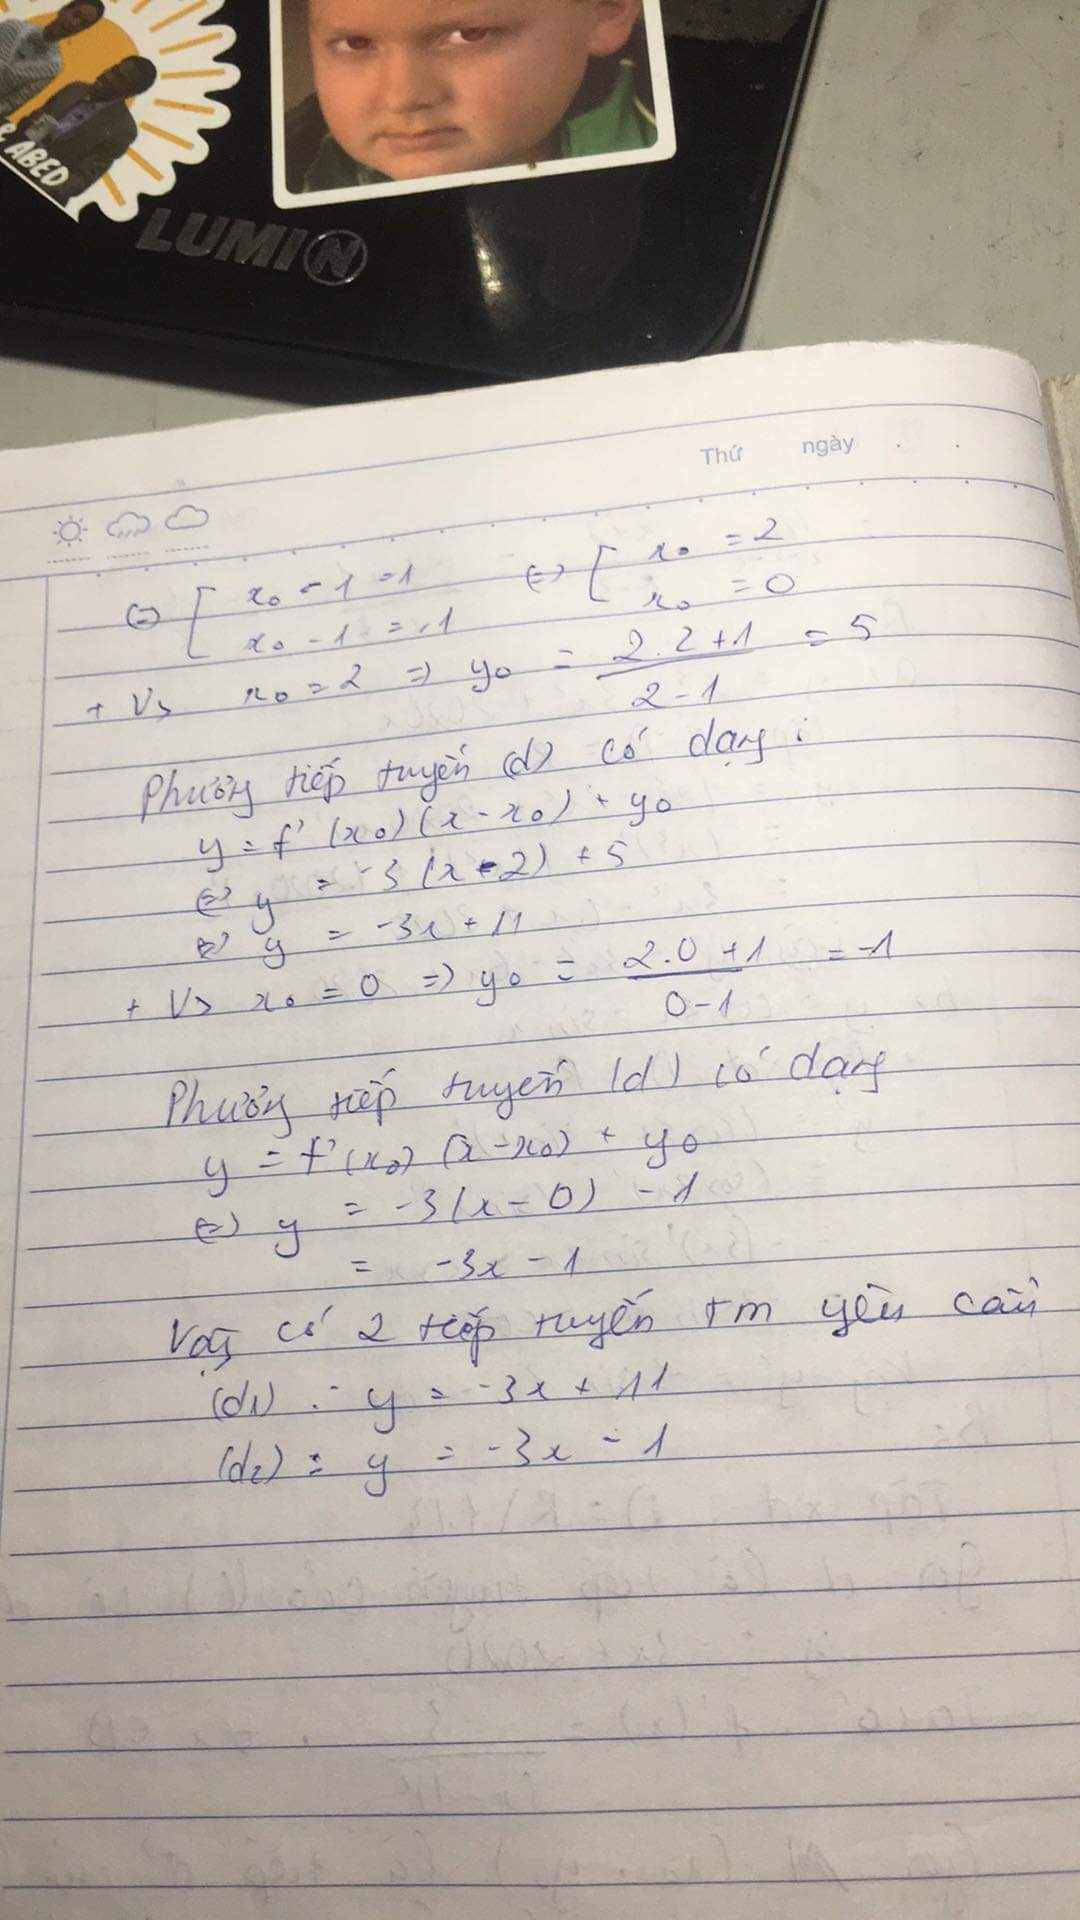 & ABED
LUMIN
Thứ ngày
(=) [ x₀ - 1 = 1 (=) [ x₀ = 2
x₀ - 1 = -1 x₀ = 0
+ Vs x₀ = 2 => y₀ = (2.2+1)/(2-1) = 5
Phương tiếp tuyến (d) có dạng :
y = f'(x₀)(x-x₀) + y₀
(=) y = -3(x-2) + 5
(=) y = -3x + 11
+ Vs x₀ = 0 => y₀ = (2.0+1)/(0-1) = -1
Phương tiếp tuyến (d) có dạng
y = f'(x₀) (x-x₀) + y₀
(=) y = -3(x-0) - 1
= -3x - 1
Vậy có 2 tiếp tuyến tm yêu cầu
(d₁) : y = -3x + 11
(d₂) : y = -3x - 1